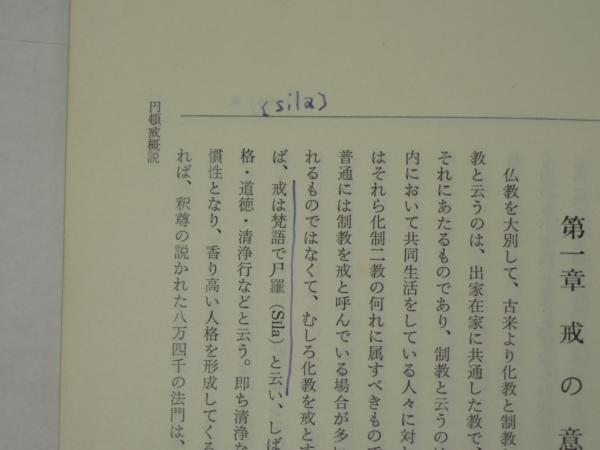 {sila}
第一章 戒の意
仏教を大別して、古来より化教と制教
教と云うのは、出家在家に共通した教で、
それにあたるものであり、制教と云うの
内において共同生活をしている人々に対
はそれら化制二教の何れに属すべきもので
普通には制教を戒と呼んでいる場合が多
れるものではなくて、むしろ化教を戒とす
ば、戒は梵語で尸羅(Sila)と云い、しば
格・道徳・清浄行などと云う。即ち清浄な
慣性となり、香り高い人格を形成してくる
れば、釈尊の説かれた八万四千の法門は、
円頓戒概説